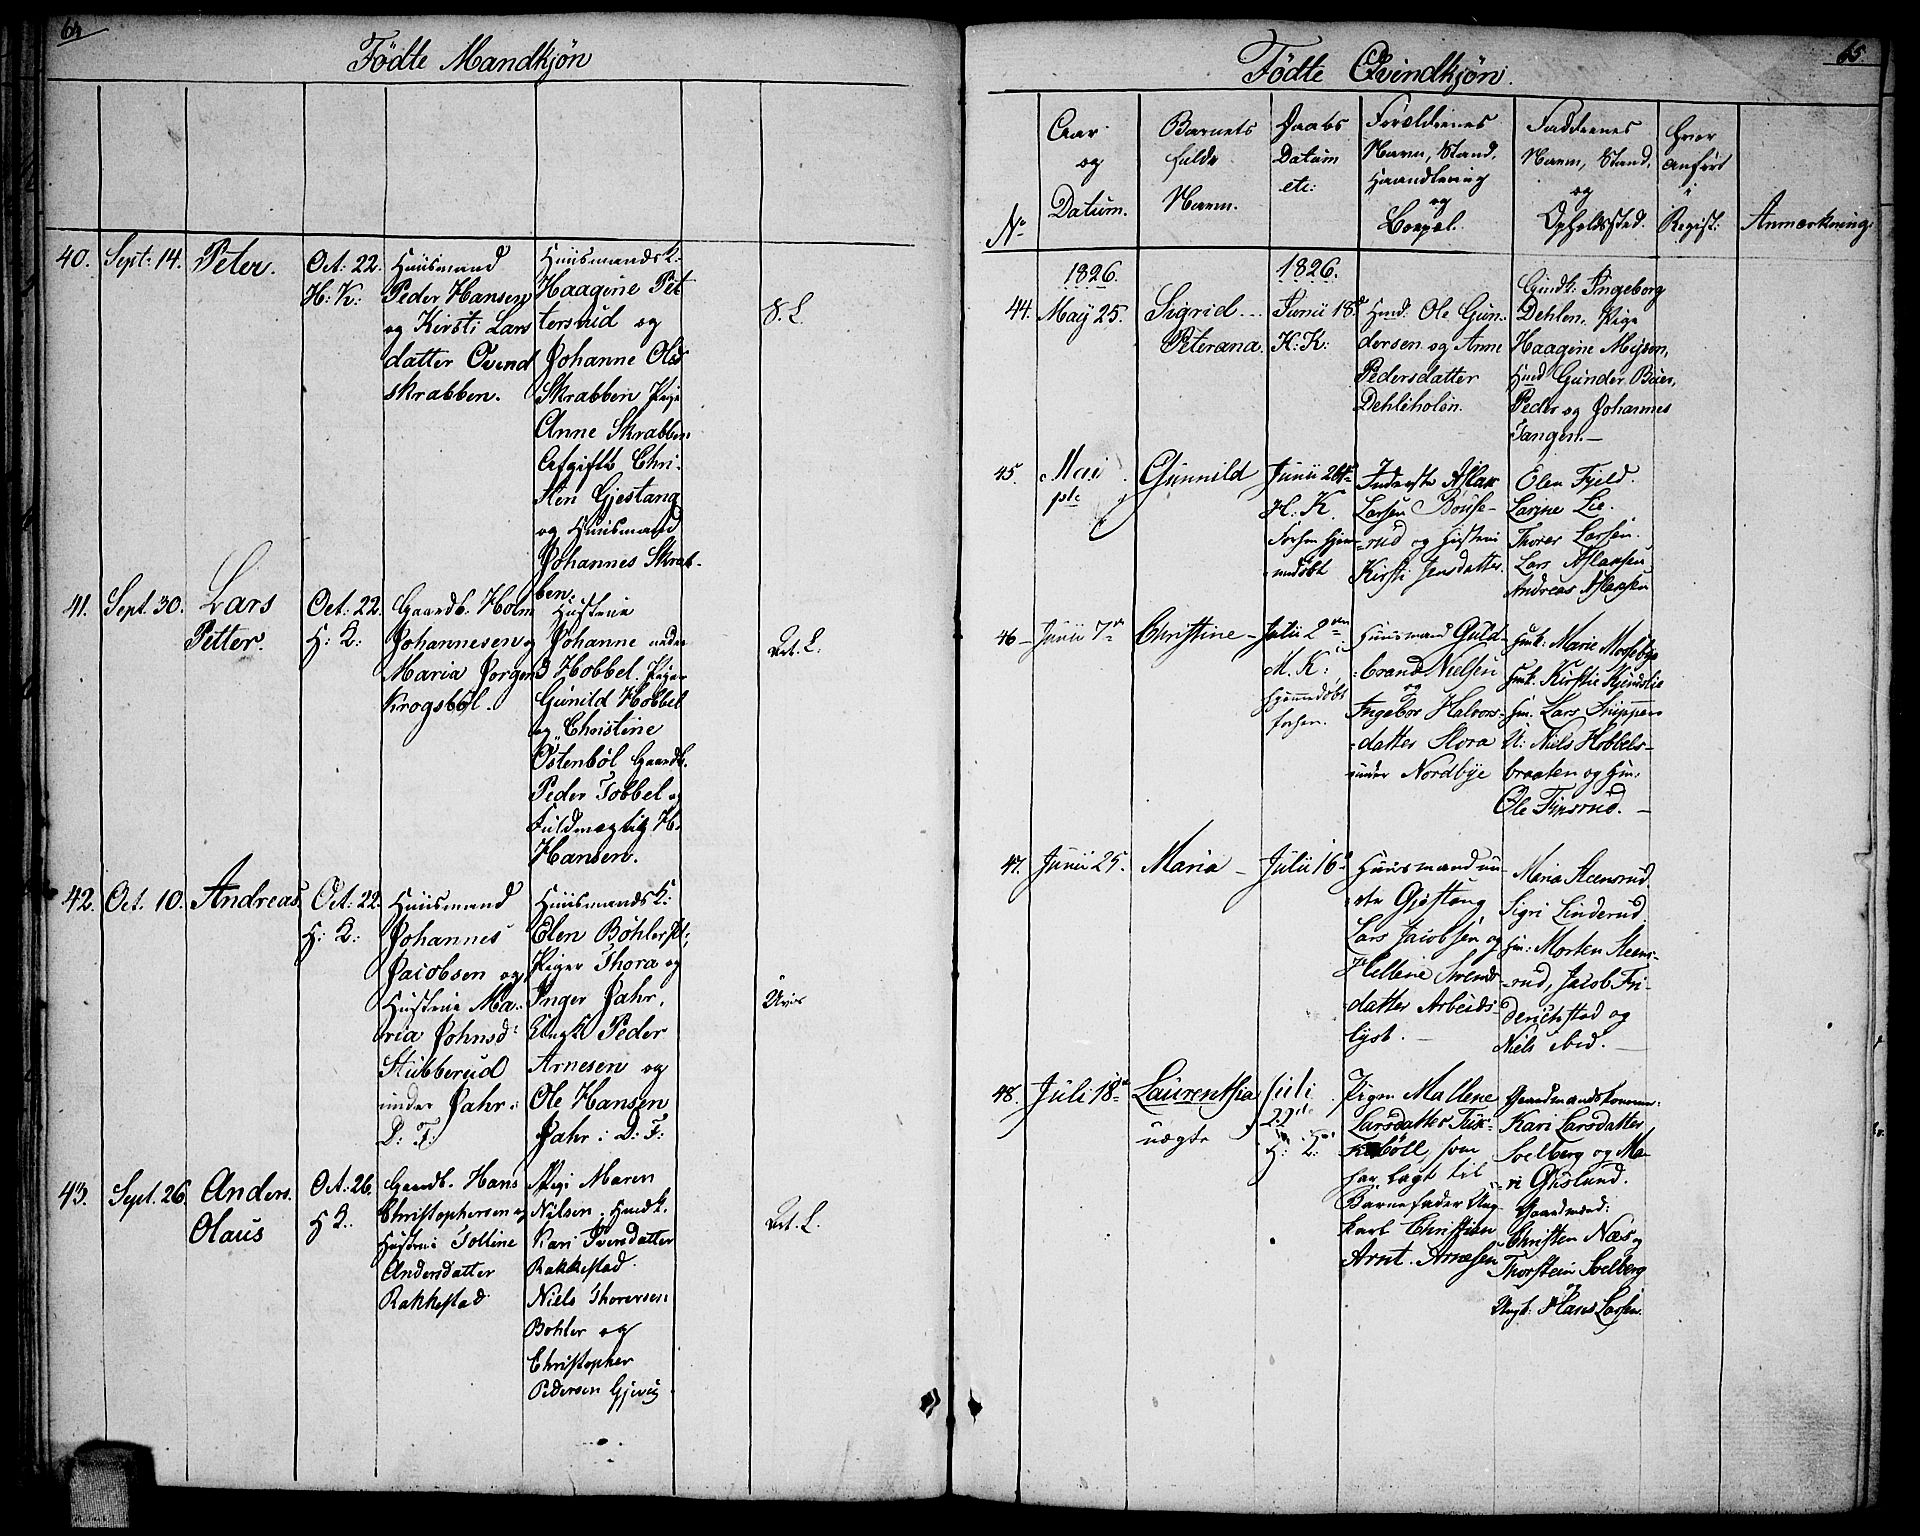 64
Födte Mandkjøn
40.
Sept: 14.
Peter.
Oct: 22.
H: K:
Huusmand
Peder Hansen
og Kirsti Lars
datter Ovend
skrabben.
Huusmandsk:
Haagine Pet
tersrud og
Johanne Ols
Skrabben Pige
Anne Skrabben
Afgifts Chri-
sten Gjestang
og Huusmand
Johannes Skrab-
ben.
41.
Sept. 30.
Lars
Petter.
Oct: 22.
H: K:
Gaardb. Holm
Johannesen og
Maria Jørgens
Krogsbøl.
Hustrue
Johanne neder
Hobbel. Piger
Gunild Hobbel
og Christine
Ostenböl Gaardb.
Peder Tobbel og
Fuldmægtig H.
Hansen.
42.
Oct. 10.
Andreas
Oct. 22.
H: K:
Huusmand
Johannes
Jacobsen og
Hustrue Ma-
ria Johnsd:
Stubberud
under Jahr:
D: F:
Huusmandsk:
Elen Böhler
Piger Thora og
Inger Jahr,
Ungk Peder
Arnesen og
Ole Hansen
Jahr: D: F:
43.
Sept. 26
Anders.
Olaus
Oct: 26.
H K:
Gaardb. Hans
Christophersen og
Hustrue Tolline
Andersdatter
Rakkestad
Pige Maren
Nilsen. Huusk.
Kari Iversdatter
Rakkestad.
Niels Thoresen
Bohler og
Christopher
Pedersen Gjevig
65.
Födte Qvindkjön.
No
Aar
og
Datum.
Barnets
fulde
Navn.
Daabs
Datum
etc:
Forældrenes
Navn, Stand,
Haandtering
og
Boepæl.
Faddernes
Navn, Stand,
og
Opholdssted.
Hvor
anført
i
Regist:
Anmærkning
1826.
1826.
44.
May 25.
Sigrid
Peterana.
Junii 18
H: K:
Hmd. Ole Gun-
dersen og Anne
Pedersdatter
Dehliholen.
Ingeborg
Dehlen. Pige
Haagine Mysen,
Hmd Gunder Buer,
Peder og Johannes
Tangen.
45.
Mai
Gunnild
Junii
H: K.
forhen hjem-
medöbt
Inderste Aslak
Larsen Bouse-
rud og Hustrue
Kirsti Jensdatter.
Elen Fjeld.
Larine Lie.
Thorer Larsen.
Lars Aslaksen
Andreas Aslaksen
46
Junii 7
Christine
Julii 2
M. K:
hjemmedøbt
forhen.
Huusmand Guld-
brand Nielsen
og
Ingebor Halvors-
datter Slora
under Nordbye
Hmk. Marie Mossebye
Hmk. Kirstie Kjendslie
Hm. Lars Skipper
U: Niels Hobbels-
braaten og Hm.
Ole Finsrud.
47.
Junii 25.
Maria
Julii 16
Huusmand un-
der Gjestang
Lars Jacobsen og
Hellene Svends-
datter Arbeids-
lyst.
Maria Steensrud
Sigri Linderud
Hm: Morten Steens-
rud, Jacob Fri-
derichstad og
Niels ibid.
48.
Juli 18
Laurenthia
uægte
Juli
22
H: K:
Pigen Mallene
Larsdatter Tus-
böll, som
har lagt til
Barnefader Ung-
karl Christian
Arnt. Arnesen
Gaardmandskonen:
Kari Larsdatter
Solberg og Ma-
ri Qvislund.
Gaardmænd:
Christen Næs og
Thorstein Solberg
og
Ungk: Hans Larsen.